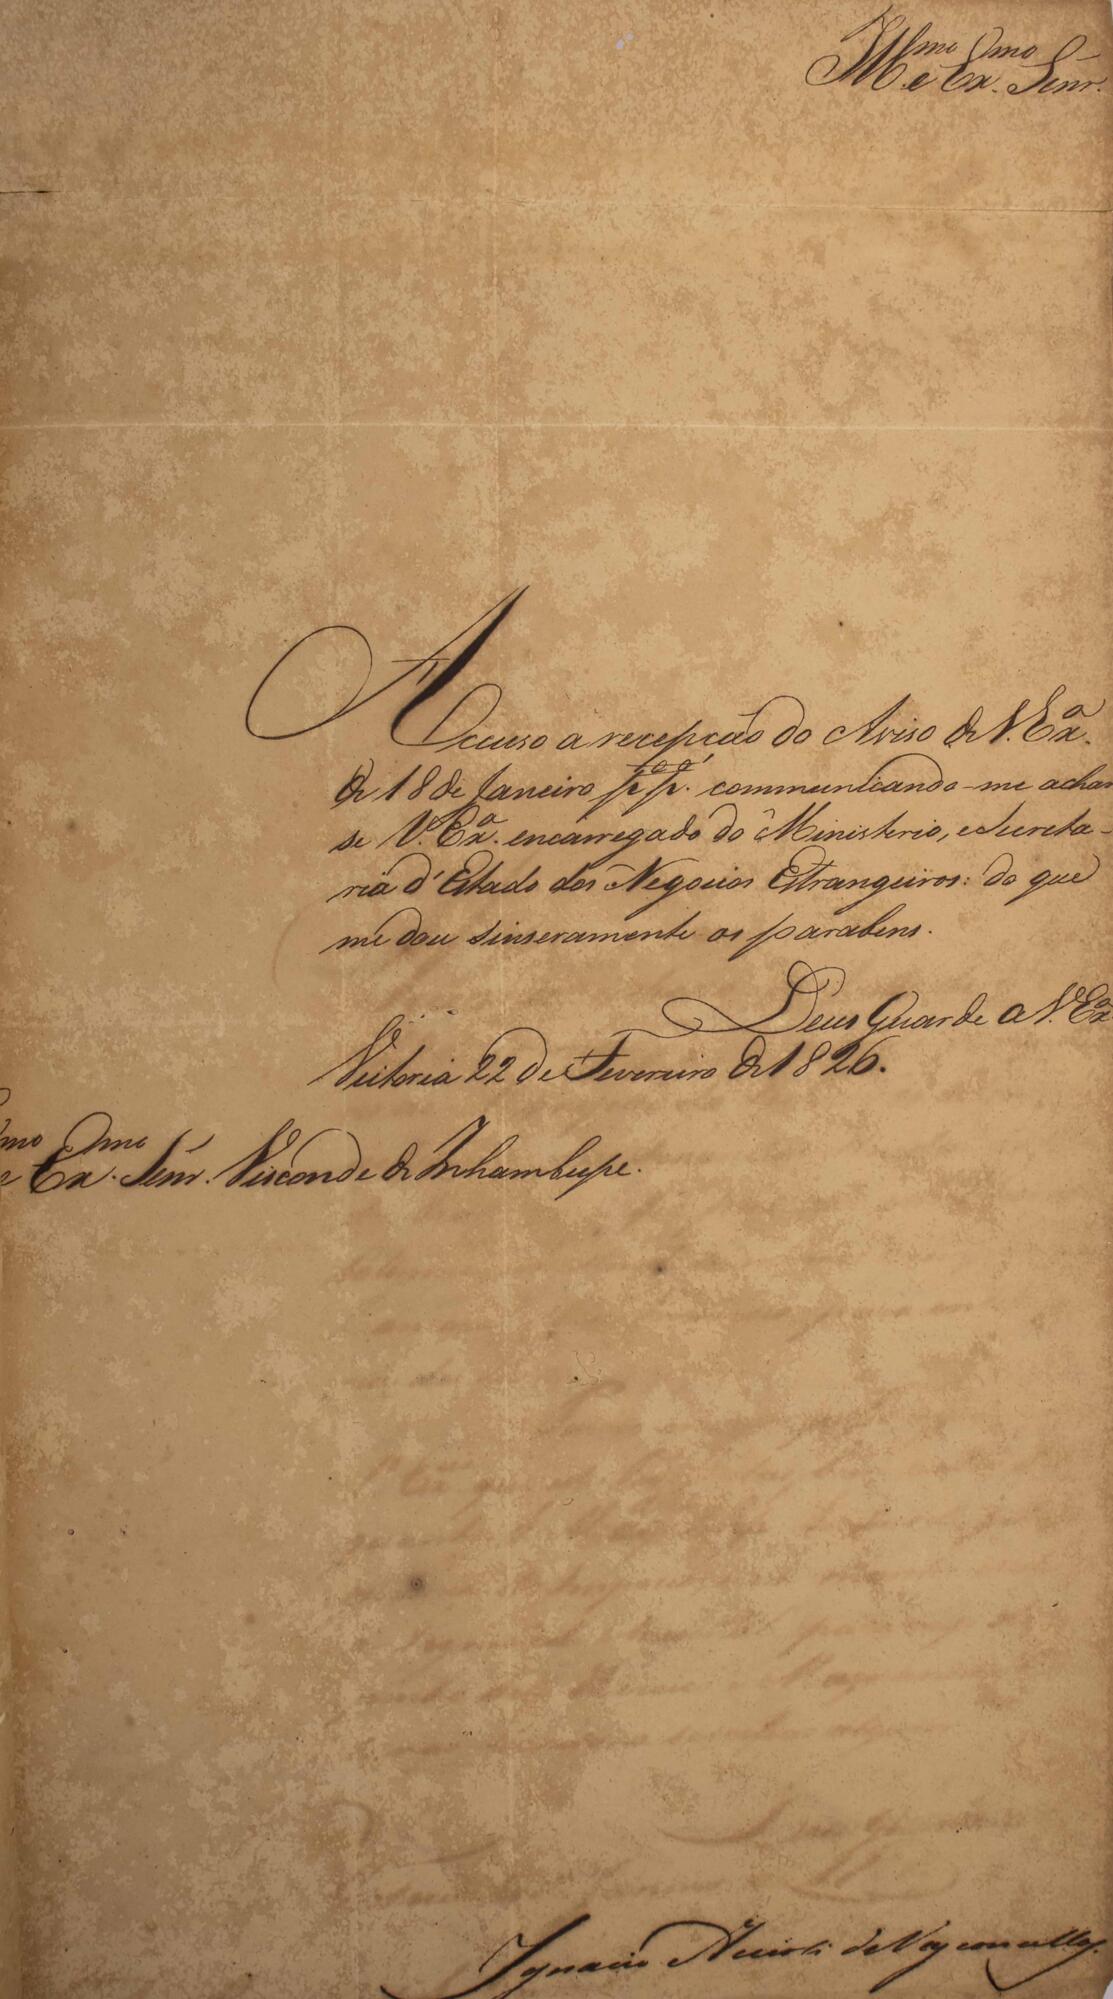 Illmo e Exmo Senr.
Accuso a recepção do Aviso de V. Exa.
de 18 de Janeiro ppo. communicando-me achar
se V. Exa. encarregado do Ministerio, e Secreta-
ria d'Estado dos Negocios Estrangeiros: do que
me dou sinseramente os parabens.
Deus Guarde a V. Exa
Victoria 22 de Fevereiro de 1826.
mo e Exmo. Senr. Visconde de Inhambupe.
Ignacio Accioli de Vasconcellos.